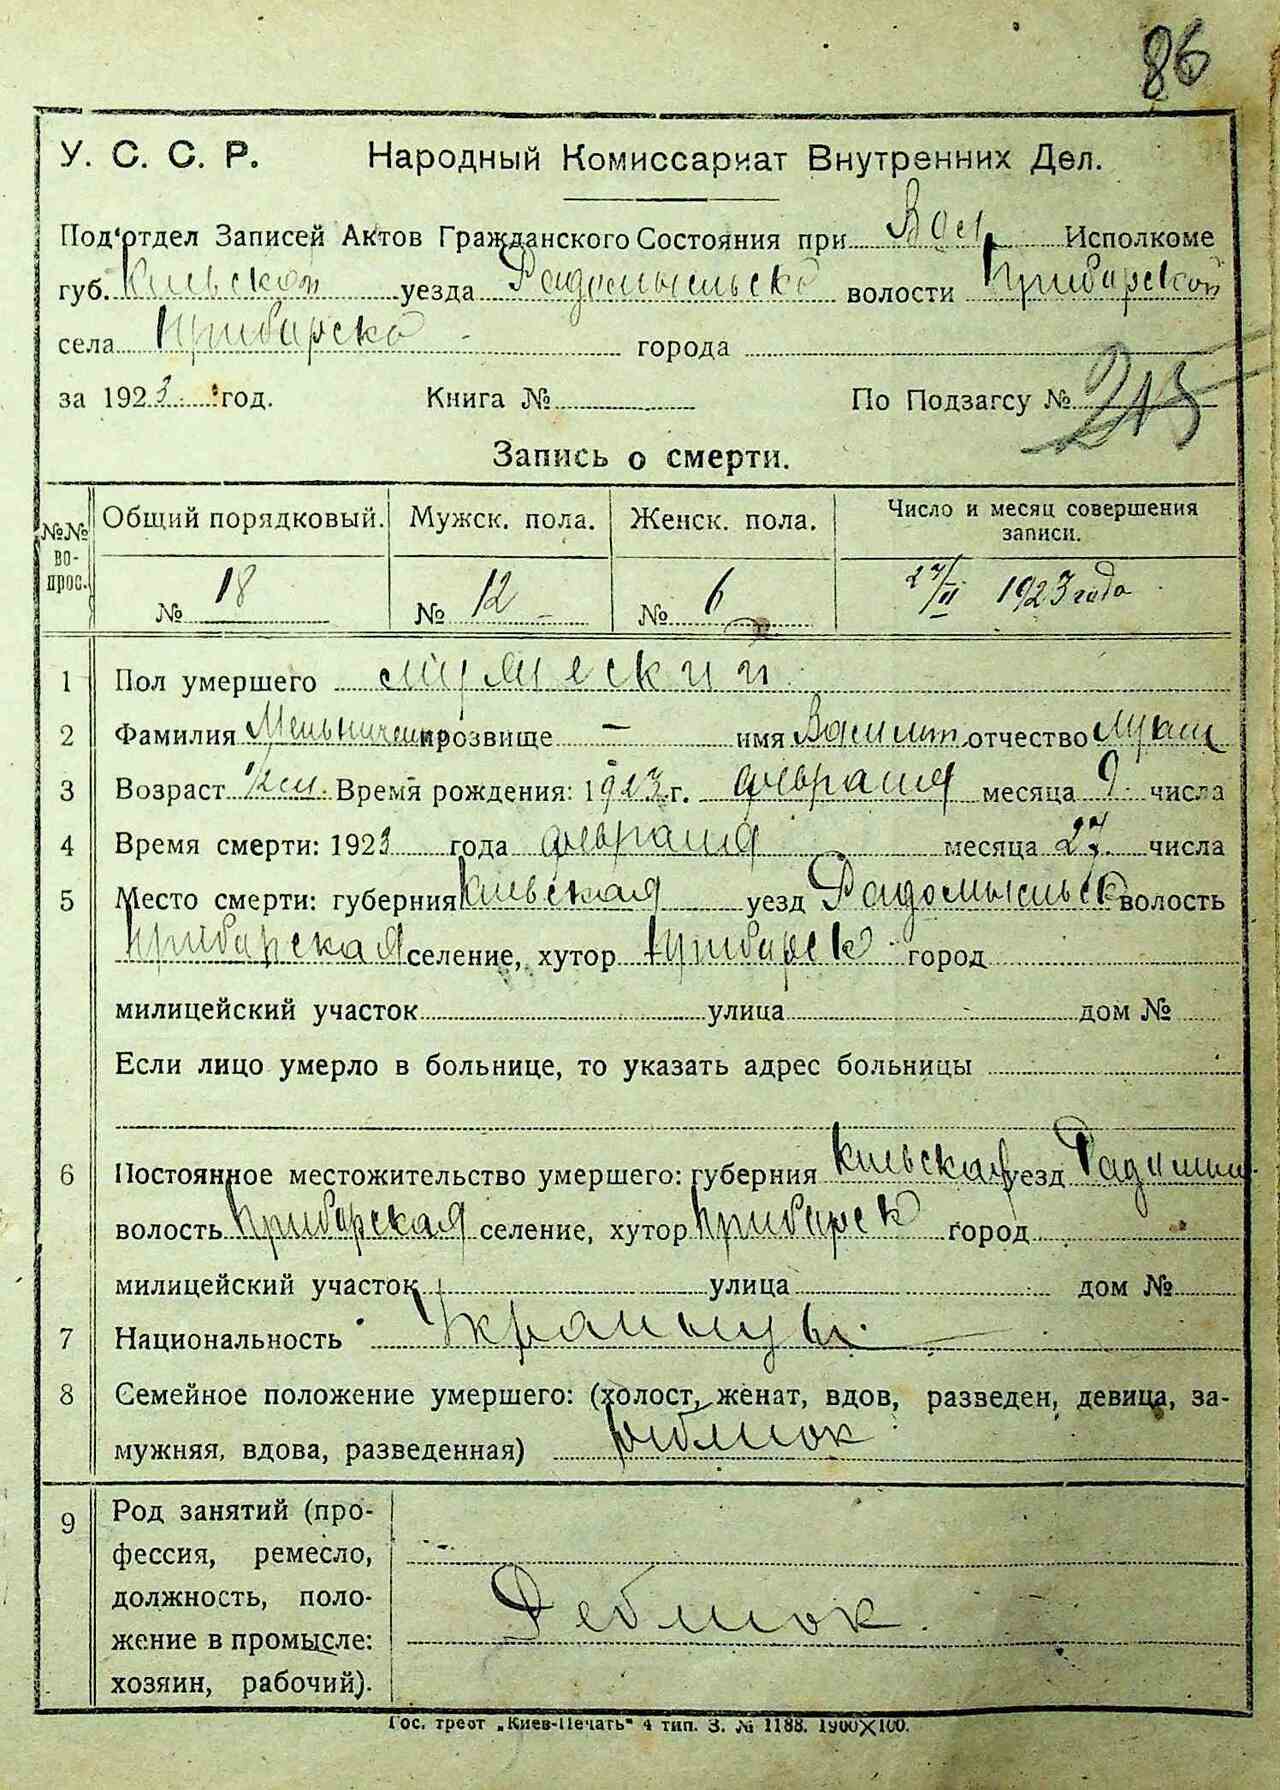 86
У. С. С. Р. Народный Комиссариат Внутренних Дел.
Под'отдел Записей Актов Гражданского Состояния при Вол Исполкоме
губ. Киевской уезда Радомысльско волости Прибарской
села Прибарско города
за 1923 год. Книга № По Подзагсу № 215
Запись о смерти.
№№ во- прос. Общий порядковый. Мужск. пола. Женск. пола. Число и месяц совершения записи.
№ 18 № 12 № 6 27/II 1923 года
1 Пол умершего мужеский
2 Фамилия Мельниченко прозвище — имя Василий отчество Лукич
3 Возраст Время рождения: 1923 г. февраля месяца 9 числа
4 Время смерти: 1923 года февраля месяца 27 числа
5 Место смерти: губерния Киевская уезд Радомысльск волость
Прибарская селение, хутор Прибарск город
милицейский участок улица дом №
Если лицо умерло в больнице, то указать адрес больницы
6 Постоянное местожительство умершего: губерния Киевская уезд
волость Прибарская селение, хутор Прибарск город
милицейский участок улица дом №
7 Национальность Украинцы
8 Семейное положение умершего: (холост, женат, вдов, разведен, девица, за-
мужняя, вдова, разведенная) ребенок
9 Род занятий (про-
фессия, ремесло,
должность, поло-
жение в промысле:
хозяин, рабочий).
Ребенок
Гос. трест „Киев-Печать" 4 тип. З. № 1188. 1900×100.